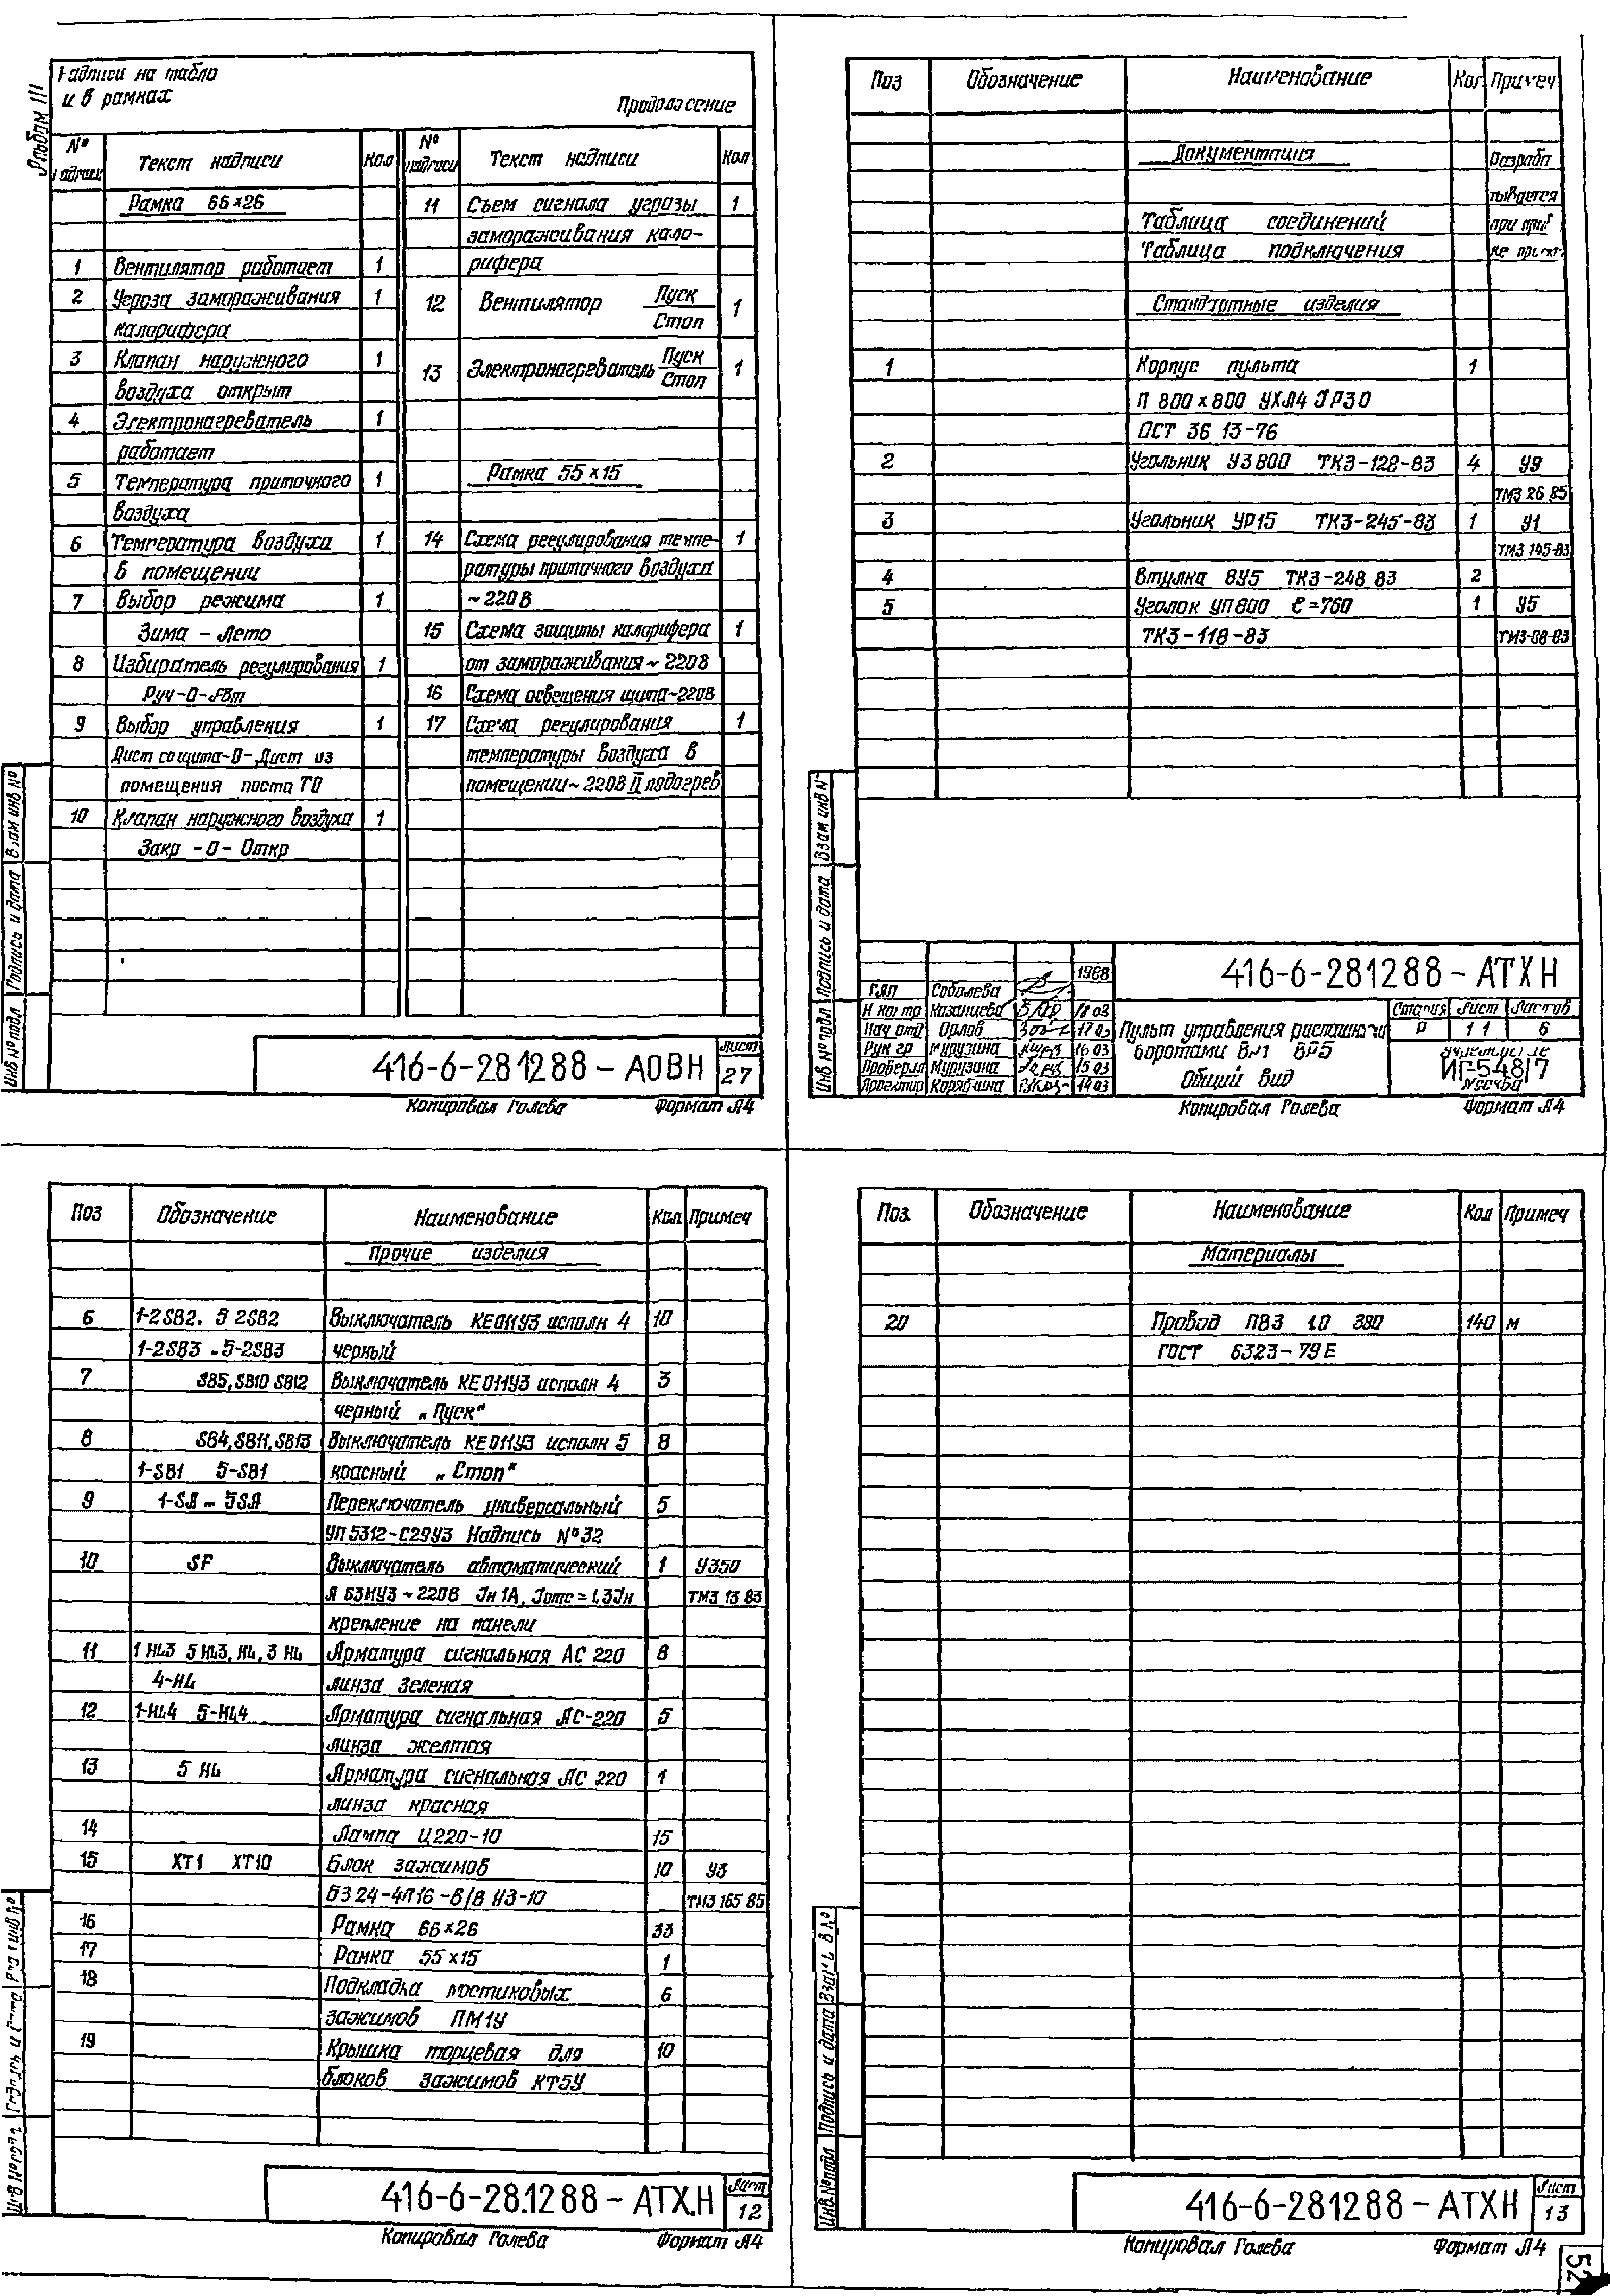 Альбом III
Надписи на табло
и в рамках
Продолжение
№ надписи Текст надписи Кол № надписи Текст надписи Кол
Рамка 66×26
1 Вентилятор работает 1
2 Угроза замораживания 1
калорифера
3 Клапан наружного 1
воздуха открыт
4 Электронагреватель 1
работает
5 Температура приточного 1
воздуха
6 Температура воздуха 1
в помещении
7 Выбор режима 1
Зима - Лето
8 Избиратель регулирования 1
Руч-О-Авт
9 Выбор управления 1
Дист со щита-О-Дист из
помещения поста ТО
10 Клапан наружного воздуха 1
Закр -О- Откр
11 Съем сигнала угрозы 1
замораживания кало-
рифера
12 Вентилятор Пуск 1
Стоп
13 Электронагреватель Пуск 1
Стоп
Рамка 55×15
14 Схема регулирования темпе- 1
ратуры приточного воздуха
~220В
15 Схема защиты калорифера 1
от замораживания ~ 220В
16 Схема освещения щита~220В
17 Схема регулирования 1
температуры воздуха в
помещении~ 220В II подогрев
Взам инв №
Подпись и дата
Инв № подл
416-6-281288-АОВН
Лист
27
Копировал Голева Формат А4
Поз Обозначение Наименование Кол Примеч
Документация
Разраба
тывается
при прив
Таблица соединений
Таблица подключения
Стандартные изделия
1 Корпус пульта 1
П 800×800 УХЛ4 JP30
ОСТ 36 13-76
2 Угольник У3800 ТК3-128-83 4 У9
ТМ3 26 85
3 Угольник УР15 ТК3-245-83 1 У1
ТМ3 145-83
4 Втулка ВУ5 ТК3-248 83 2
5 Уголок УП800 ℓ=760 1 У5
ТК3-118-83 ТМ3-88-83
Взам инв №
Подпись и дата
Инв № подл
1988
ГАП Соболева
Н контр Казанцева 18 03
Нач отд Орлов 17 03
Рук гр Мурузина 16 03
Проверил Мурузина 15 03
Проектир Корябкина 14 03
416-6-281288-АТХН
Пульт управления распашными
воротами ВР1 ВР5
Общий вид
Стадия Лист Листов
Р 11 6
ИГ-548/7
Москва
Копировал Голева Формат А4
Поз Обозначение Наименование Кол Примеч
Прочие изделия
6 1-2SB2. 5 2SB2 Выключатель КЕ011У3 исполн 4 10
1-2SB3 .. 5-2SB3 черный
7 SB5, SB10 SB12 Выключатель КЕ011У3 исполн 4 3
черный „Пуск"
8 SB4, SB11, SB13 Выключатель КЕ011У3 исполн 5 8
1-SB1 5-SB1 красный „Стоп"
9 1-SA ... 5SA Переключатель универсальный 5
УП5312-С29У3 Надпись №32
10 SF Выключатель автоматический 1 У350
А 63МУ3 ~ 220В Jн 1А, Jотс = 1.3Jн ТМ3 13 83
крепление на панели
11 1 HL3 5 HL3, HL, 3 HL Арматура сигнальная АС 220 8
4-HL линза зеленая
12 1-HL4 5-HL4 Арматура сигнальная АС-220 5
линза желтая
13 5 HL Арматура сигнальная АС 220 1
линза красная
14 Лампа Ц220-10 15
15 ХТ1 ХТ10 Блок зажимов 10 У3
БЗ 24-4П16-В/В У3-10 ТМ3 165 85
16 Рамка 66×26 33
17 Рамка 55×15 1
18 Подкладка мостиковых 6
зажимов ПМ1У
19 Крышка торцевая для 10
блоков зажимов КТ5У
416-6-28.1288-АТХ.Н
Лист
12
Копировал Голева Формат А4
Поз. Обозначение Наименование Кол Примеч
Материалы
20 Провод ПВ3 1.0 380 140 м
ГОСТ 6323-79Е
Подпись и дата
Инв.№ подл
416-6-281288-АТХН
Лист
13
Копировал Голева Формат А4
52